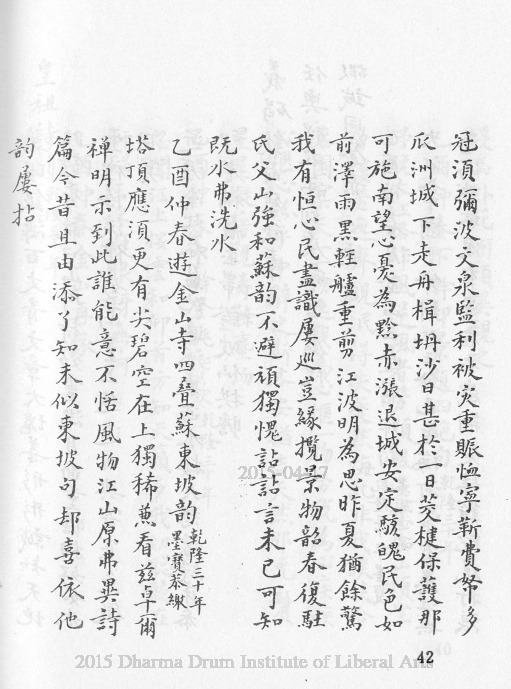 冠須彌波文泉監利被灾重賑恤寧靳費帑多
瓜洲城下走舟楫坍沙日甚於一日茭楗保護那
可施南望心憂為黔赤漲退城安定駭魄民色如
前澤雨黑輕艫重剪江波明為思昨夏猶餘驚
我有恒心民盡識屢巡豈緣攬景物韶春復駐
氏父山強和蘇韵不避頑獨愧詀詀言未已可知
既水弗洗水
乙酉仲春遊金山寺四叠蘇東坡韵乾隆三十年墨寶恭繳
塔頂應須更有尖碧空在上獨稀兼看茲卓爾
禅明示到此誰能意不恬風物江山原弗異詩
篇今昔且由添了知未似東坡句却喜依他
韵屢拈
2015-04-27
2015 Dharma Drum Institute of Liberal Arts
42